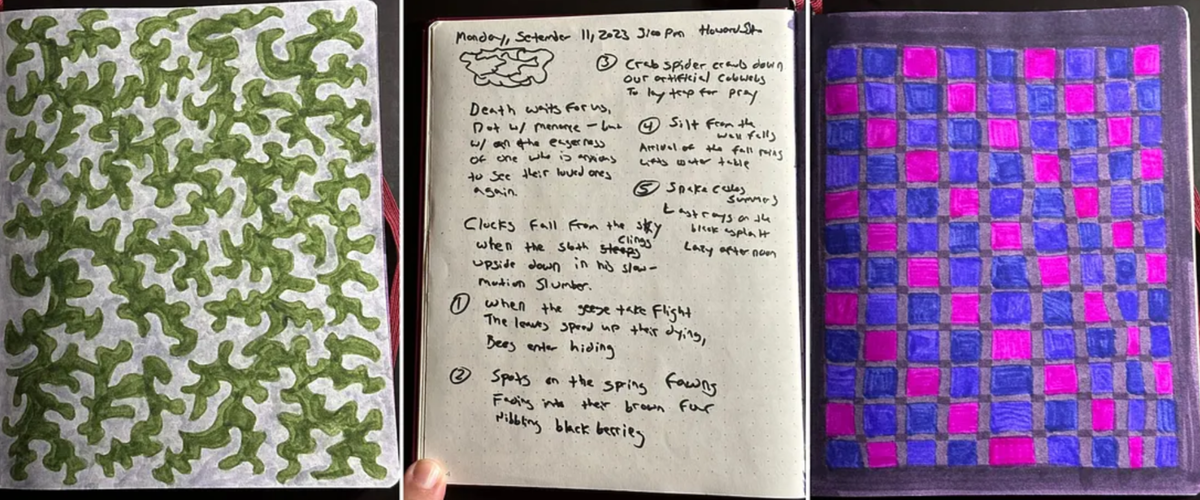 Monday, Setember 11, 2023 3:00 pm Howard St.
Death waits for us,
Not w/ menance – but
w/ all the eagerness
of one who is anxious
to see their loved ones
again.
Clocks fall from the sky
when the sloth clings
upside down in his slow-
motion slumber.
① When the geese take flight
The leaves speed up their dying,
Bees enter hiding
② Spots on the spring fawns
Fading into their brown fur
Nibbling black berries
③ Crab spider crawls down
Our artificial cobwebs
To lay trap for pray
④ Silt from the
well falls
Arrival of the fall rains
Lifts water table
⑤ Snake
summers
Last rays on the
black asphalt
Lazy afternoon